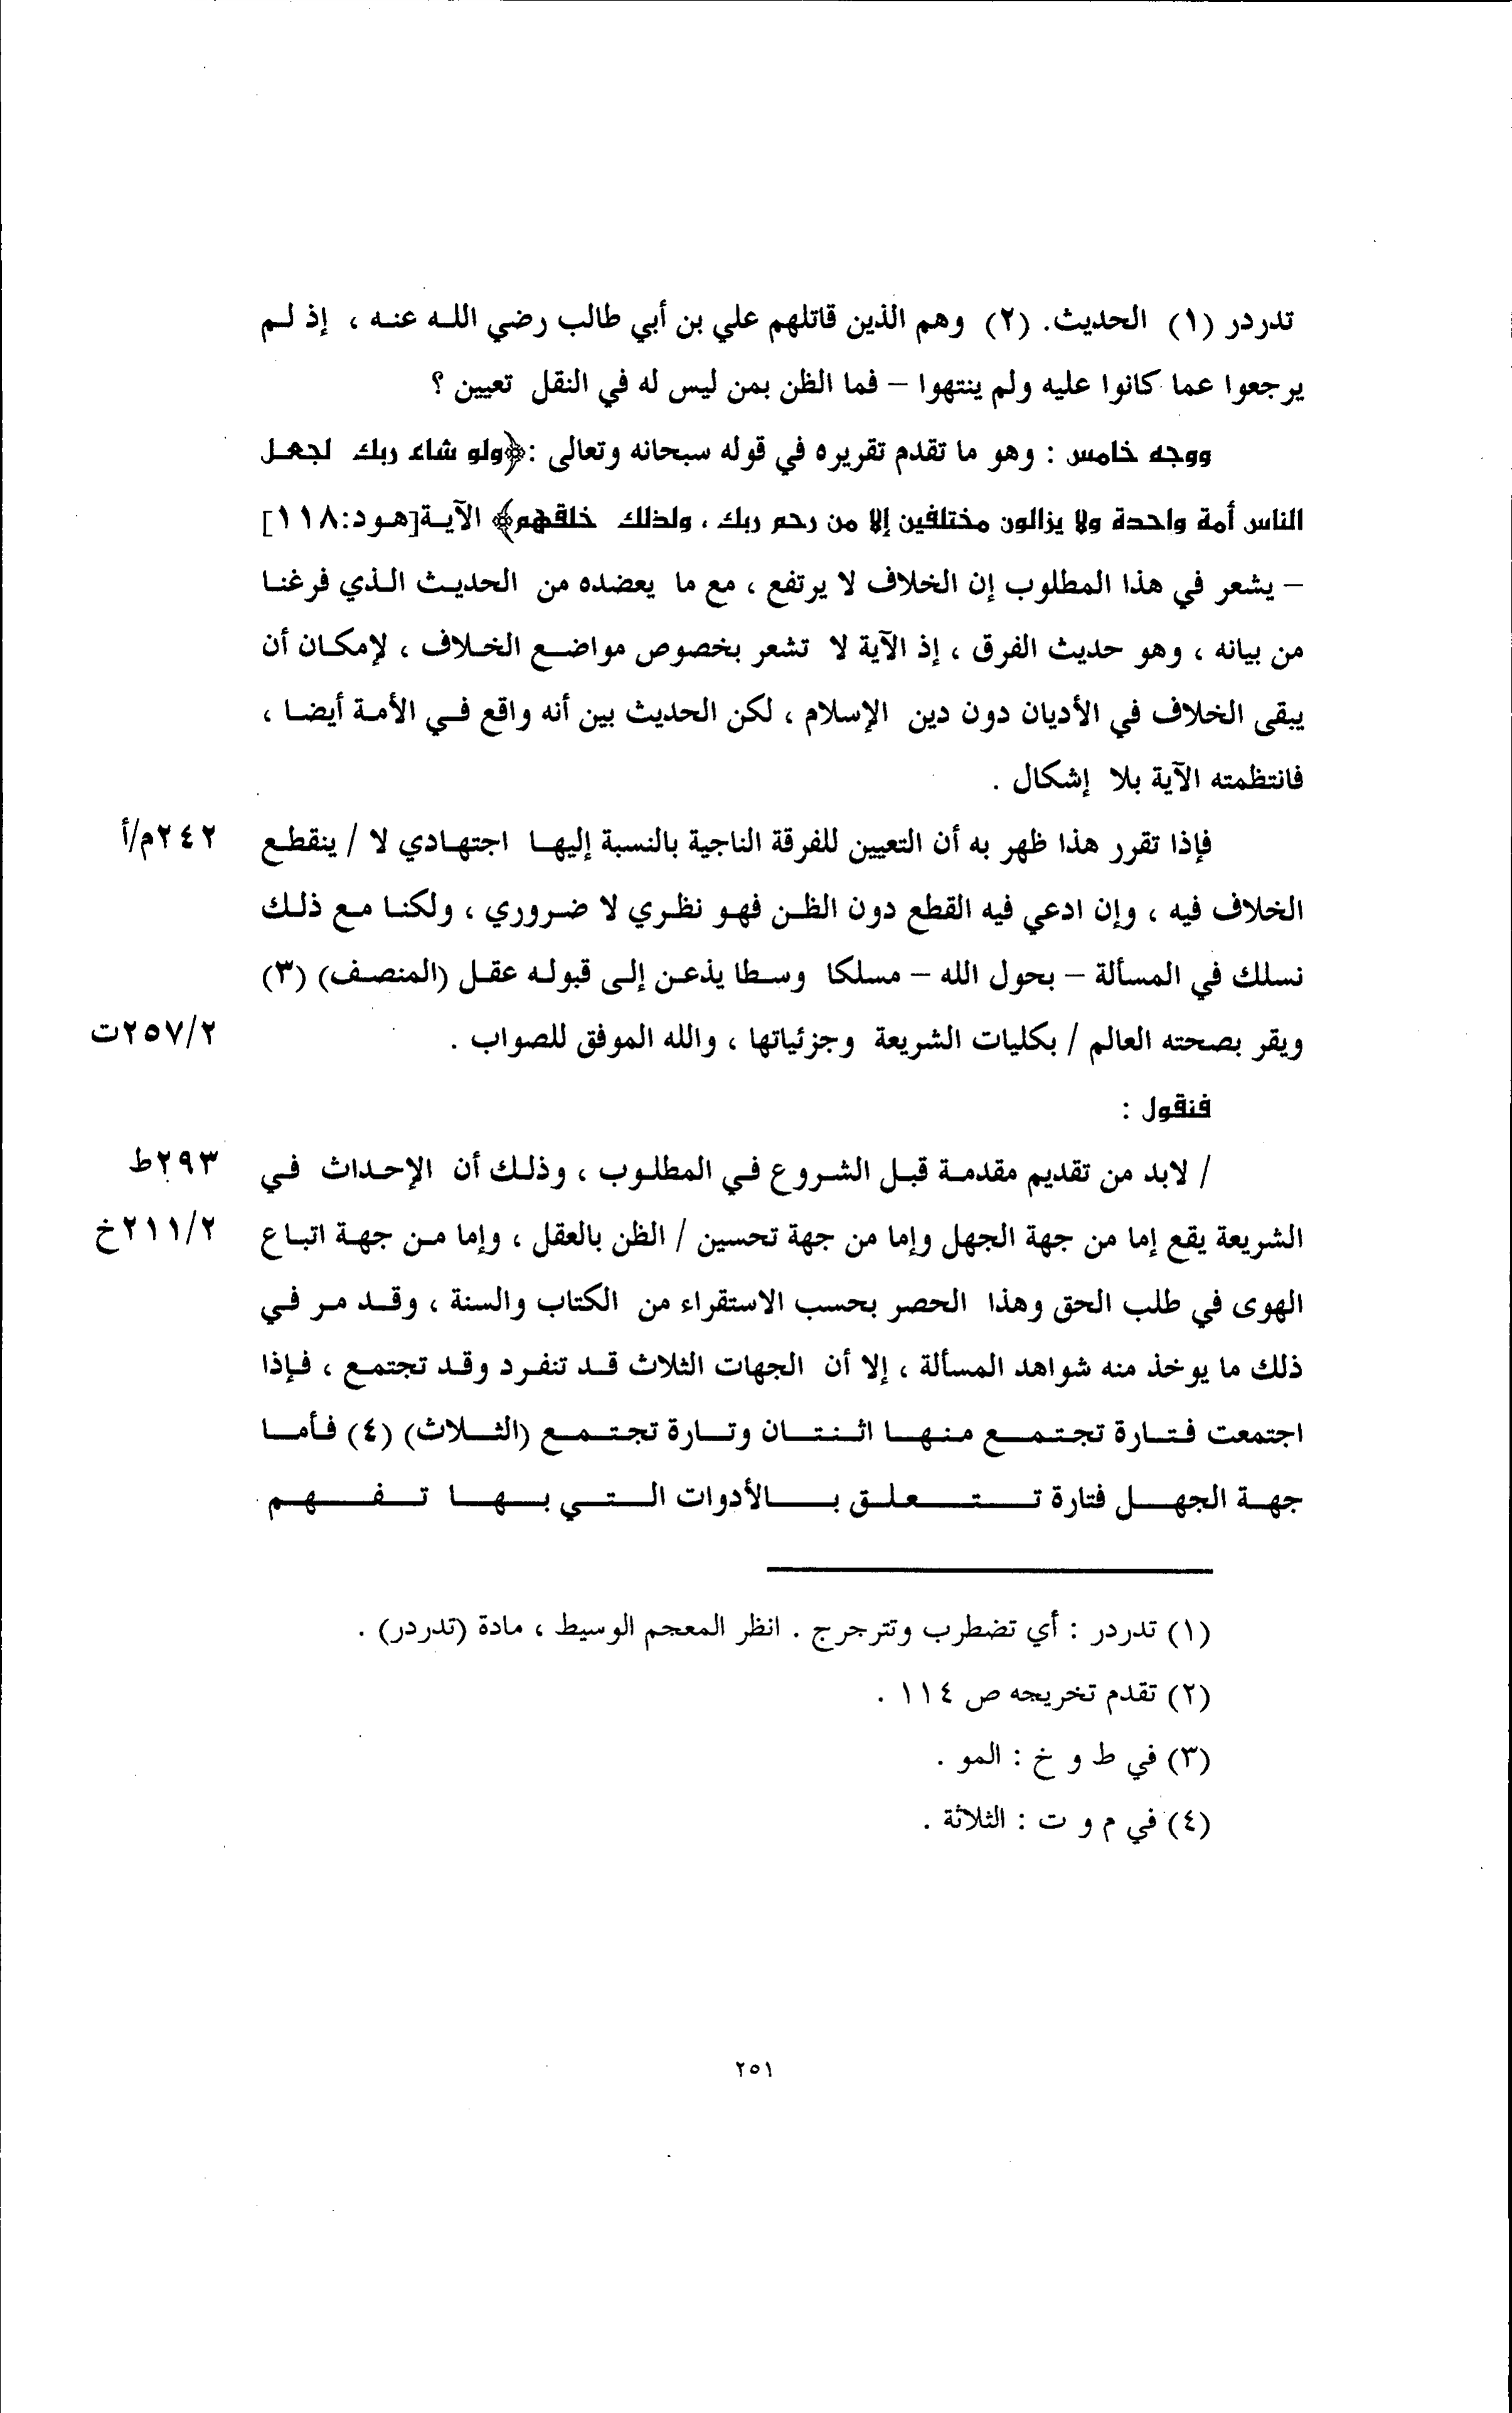 تدردر (١) الحديث. (٢) وهم الذين قاتلهم علي بن أبي طالب رضي الله عنه ، إذ لم
يرجعوا عما كانوا عليه ولم ينتهوا – فما الظن بمن ليس له في النقل تعيين ؟
ووجه خامس : وهو ما تقدم تقريره في قوله سبحانه وتعالى :﴿ولو شاء ربك لجعل
الناس أمة واحدة ولا يزالون مختلفين إلا من رحم ربك ، ولذلك خلقهم﴾ الآية[هود:١١٨]
– يشعر في هذا المطلوب إن الخلاف لا يرتفع ، مع ما يعضده من الحديث الذي فرغنا
من بيانه ، وهو حديث الفرق ، إذ الآية لا تشعر بخصوص مواضع الخلاف ، لإمكان أن
يبقى الخلاف في الأديان دون دين الإسلام ، لكن الحديث بين أنه واقع في الأمة أيضا ،
فانتظمته الآية بلا إشكال .
فإذا تقرر هذا ظهر به أن التعيين للفرقة الناجية بالنسبة إليها اجتهادي لا / ينقطع ٢٤٢م/أ
الخلاف فيه ، وإن ادعي فيه القطع دون الظن فهو نظري لا ضروري ، ولكنا مع ذلك
نسلك في المسألة – بحول الله – مسلكا وسطا يذعن إلى قبوله عقل (المنصف) (٣)
ويقر بصحته العالم / بكليات الشريعة وجزئياتها ، والله الموفق للصواب . ٢٥٧/٢ت
فنقول :
/ لابد من تقديم مقدمة قبل الشروع في المطلوب ، وذلك أن الإحداث في ٢٩٣ط
الشريعة يقع إما من جهة الجهل وإما من جهة تحسين / الظن بالعقل ، وإما من جهة اتباع ٢١١/٢خ
الهوى في طلب الحق وهذا الحصر بحسب الاستقراء من الكتاب والسنة ، وقد مر في
ذلك ما يوخذ منه شواهد المسألة ، إلا أن الجهات الثلاث قد تنفرد وقد تجتمع ، فإذا
اجتمعت فتارة تجتمع منها اثنتان وتارة تجتمع (الثلاث) (٤) فأما
جهة الجهل فتارة تتعلق بالأدوات التي بها تفهم
(١) تدردر : أي تضطرب وتترجرج . انظر المعجم الوسيط ، مادة (تدردر) .
(٢) تقدم تخريجه ص ١١٤ .
(٣) في ط و خ : المو .
(٤) في م و ت : الثلاثة .
٢٥١